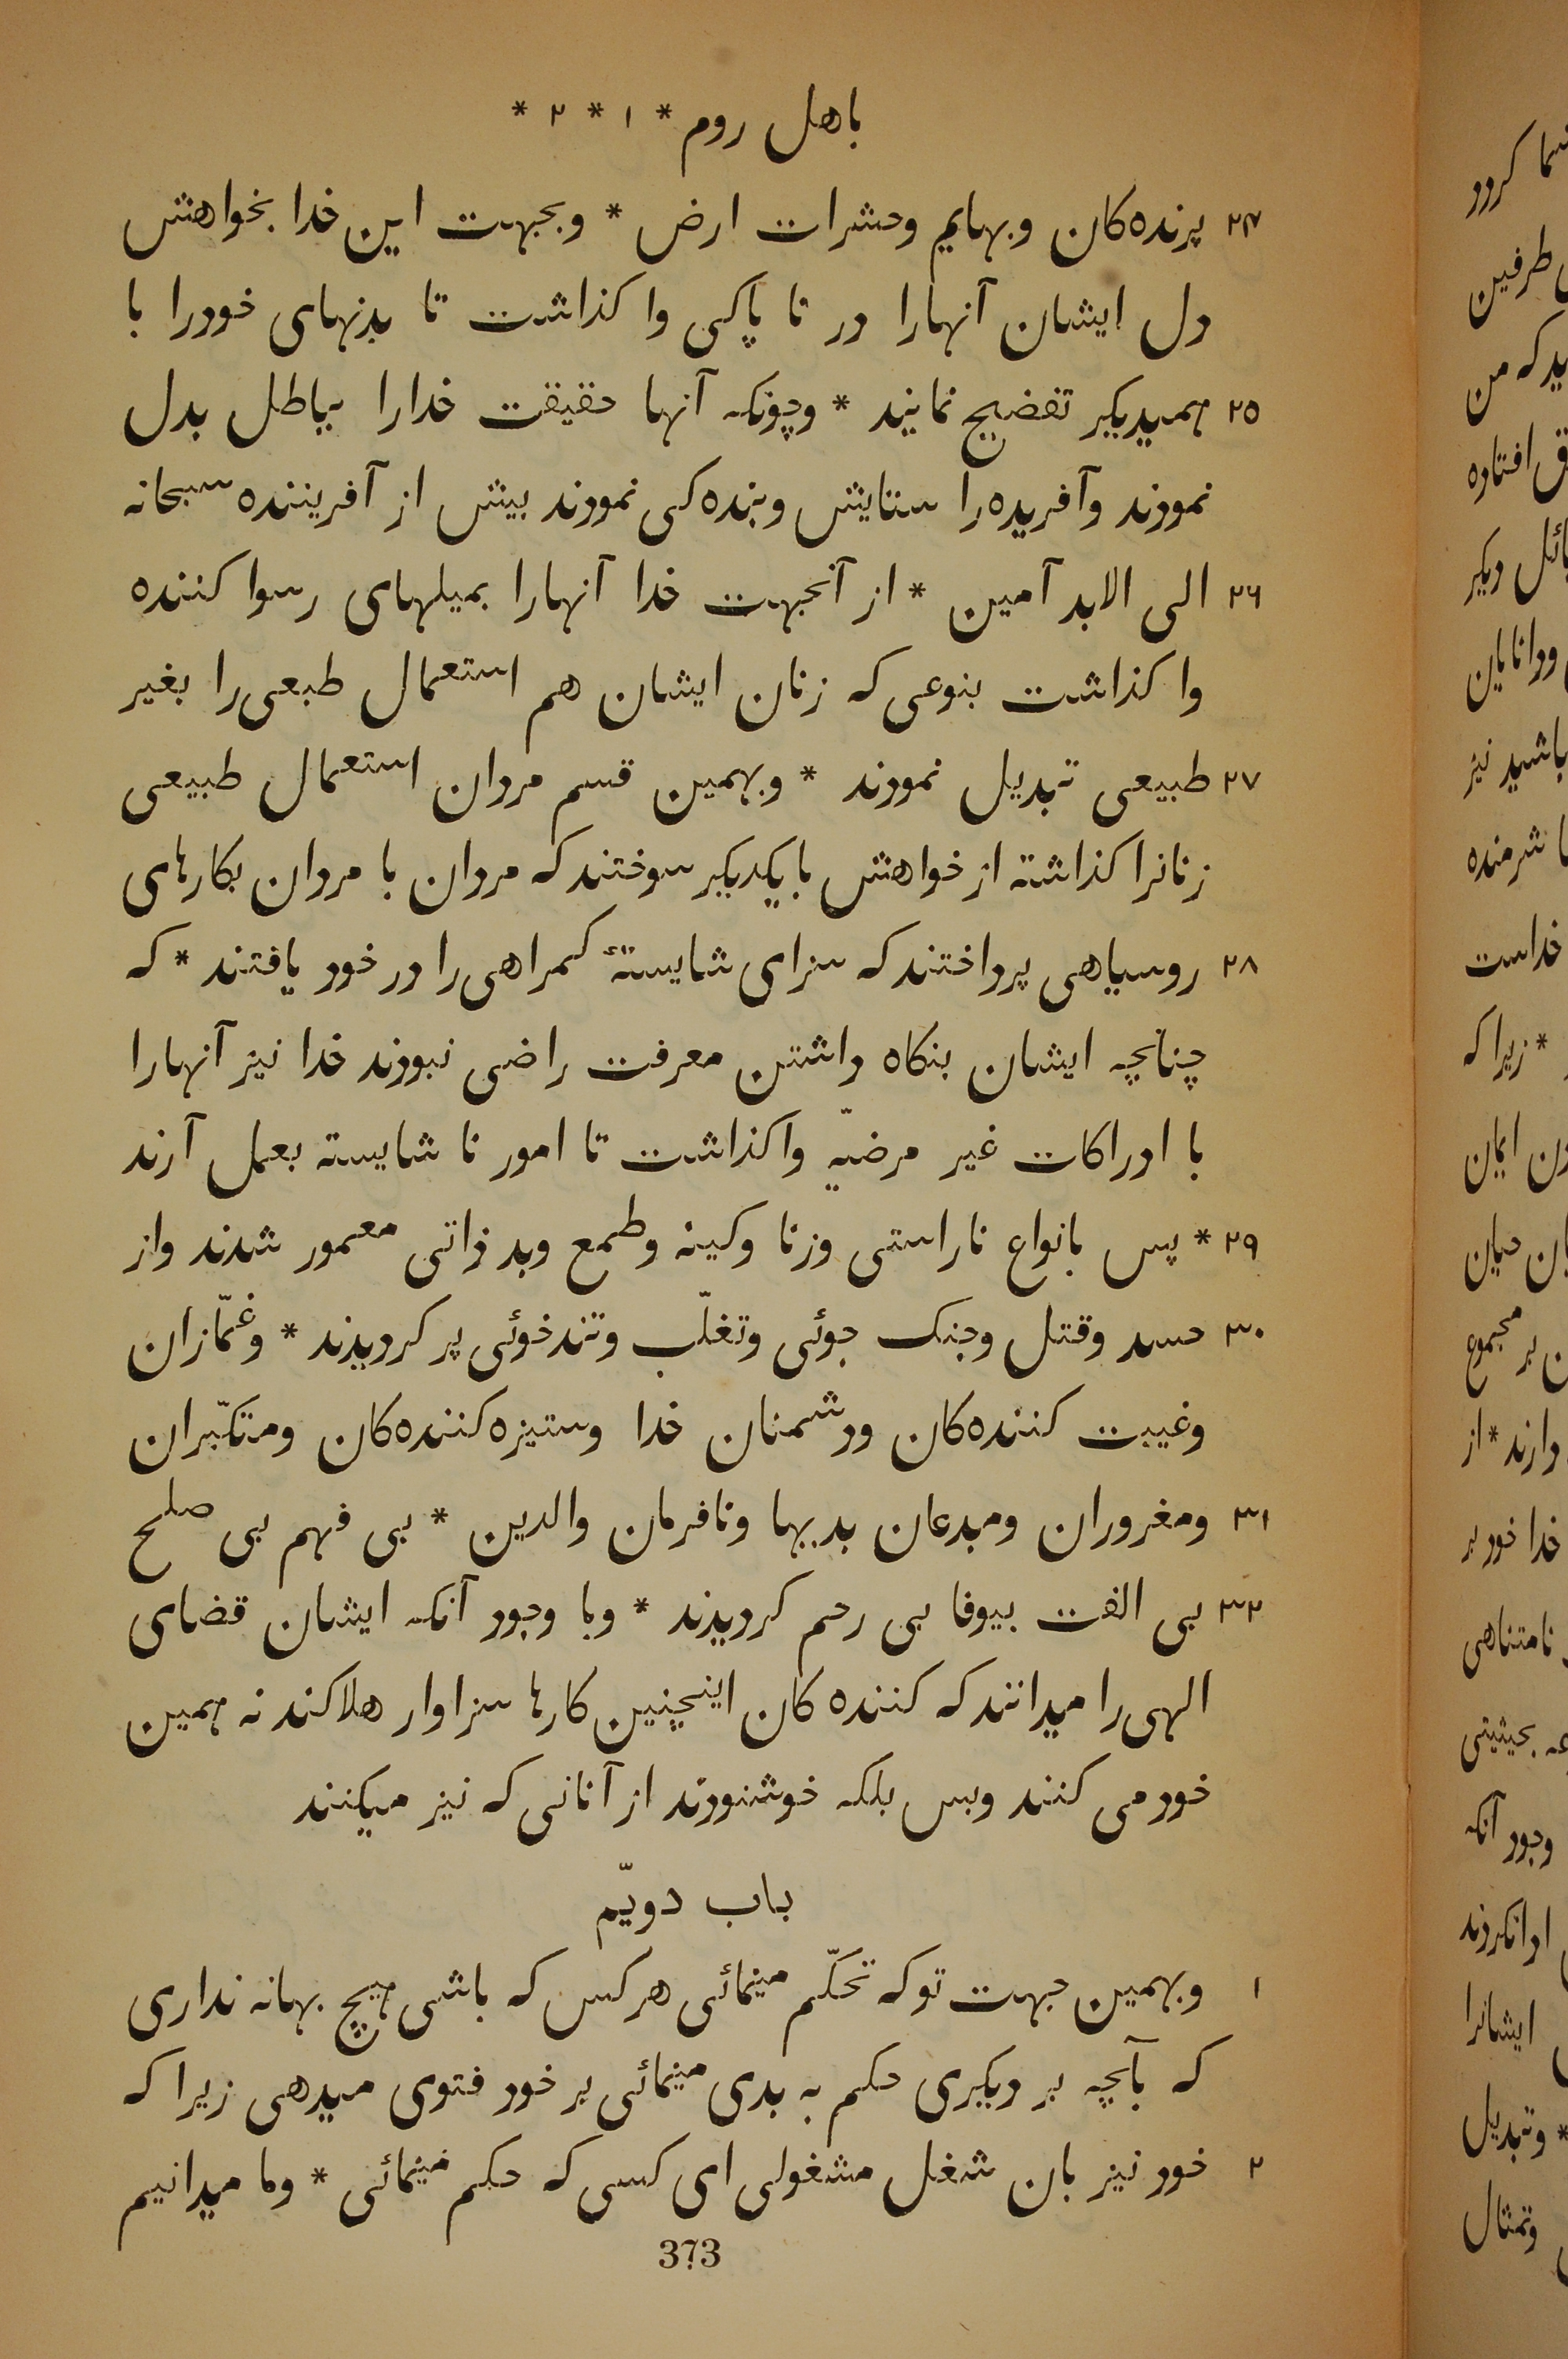 باهل روم * ۱ * ۲ *
۲۴ پرنده‌کان وبهایم وحشرات ارض * وبجهت این خدا بخواهش
دل ایشان آنهارا در نا پاکی وا کذاشت تا بدنهای خودرا با
۲۵ همدیکر تفضیح نمایند * وچونکه آنها حقیقت خدارا بباطل بدل
نمودند وآفریده‌را ستایش وبنده‌کی نمودند بیش از آفریننده سبحانه
۲۶ الی الابد آمین * از آنجهت خدا آنهارا بمیلهای رسوا کننده
وا کذاشت بنوعی که زنان ایشان هم استعمال طبعی را بغیر
۲۷ طبیعی تبدیل نمودند * وبهمین قسم مردان استعمال طبیعی
زنانرا کذاشته از خواهش با یکدیکر سوختند که مردان با مردان بکارهای
۲۸ روسیاهی پرداختند که سزای شایستهٔ کمراهی را در خود یافتند * که
چنانچه ایشان بنکاه داشتن معرفت راضی نبودند خدا نیز آنهارا
با ادراکات غیر مرضیّه واکذاشت تا امور نا شایسته بعمل آرند
۲۹ * پس بانواع ناراستی وزنا وکینه وطمع وبد ذاتی معمور شدند واز
۳۰ حسد وقتل وجنک جوئی وتغلّب وتندخوئی پر کردیدند * وغمّازان
وغیبت کننده‌کان ودشمنان خدا وستیزه کننده‌کان ومتکبّران
۳۱ ومغروران ومبدعان بدیها ونافرمان والدین * بی فهم بی صلح
۳۲ بی الفت بیوفا بی رحم کردیدند * وبا وجود آنکه ایشان قضای
الهی را میدانند که کننده کان اینچنین کارها سزاوار هلاکند نه همین
خود می کنند وبس بلکه خوشنودند از آنانی که نیز میکنند
باب دویّم
۱ وبهمین جهت توکه تحکّم مینمائی هرکس که باشی هیچ بهانه نداری
که بآنچه بر دیکری حکم به بدی مینمائی بر خود فتوی میدهی زیرا که
۲ خود نیز بان شغل مشغولی ای کسی که حکم مینمائی * وما میدانیم
373